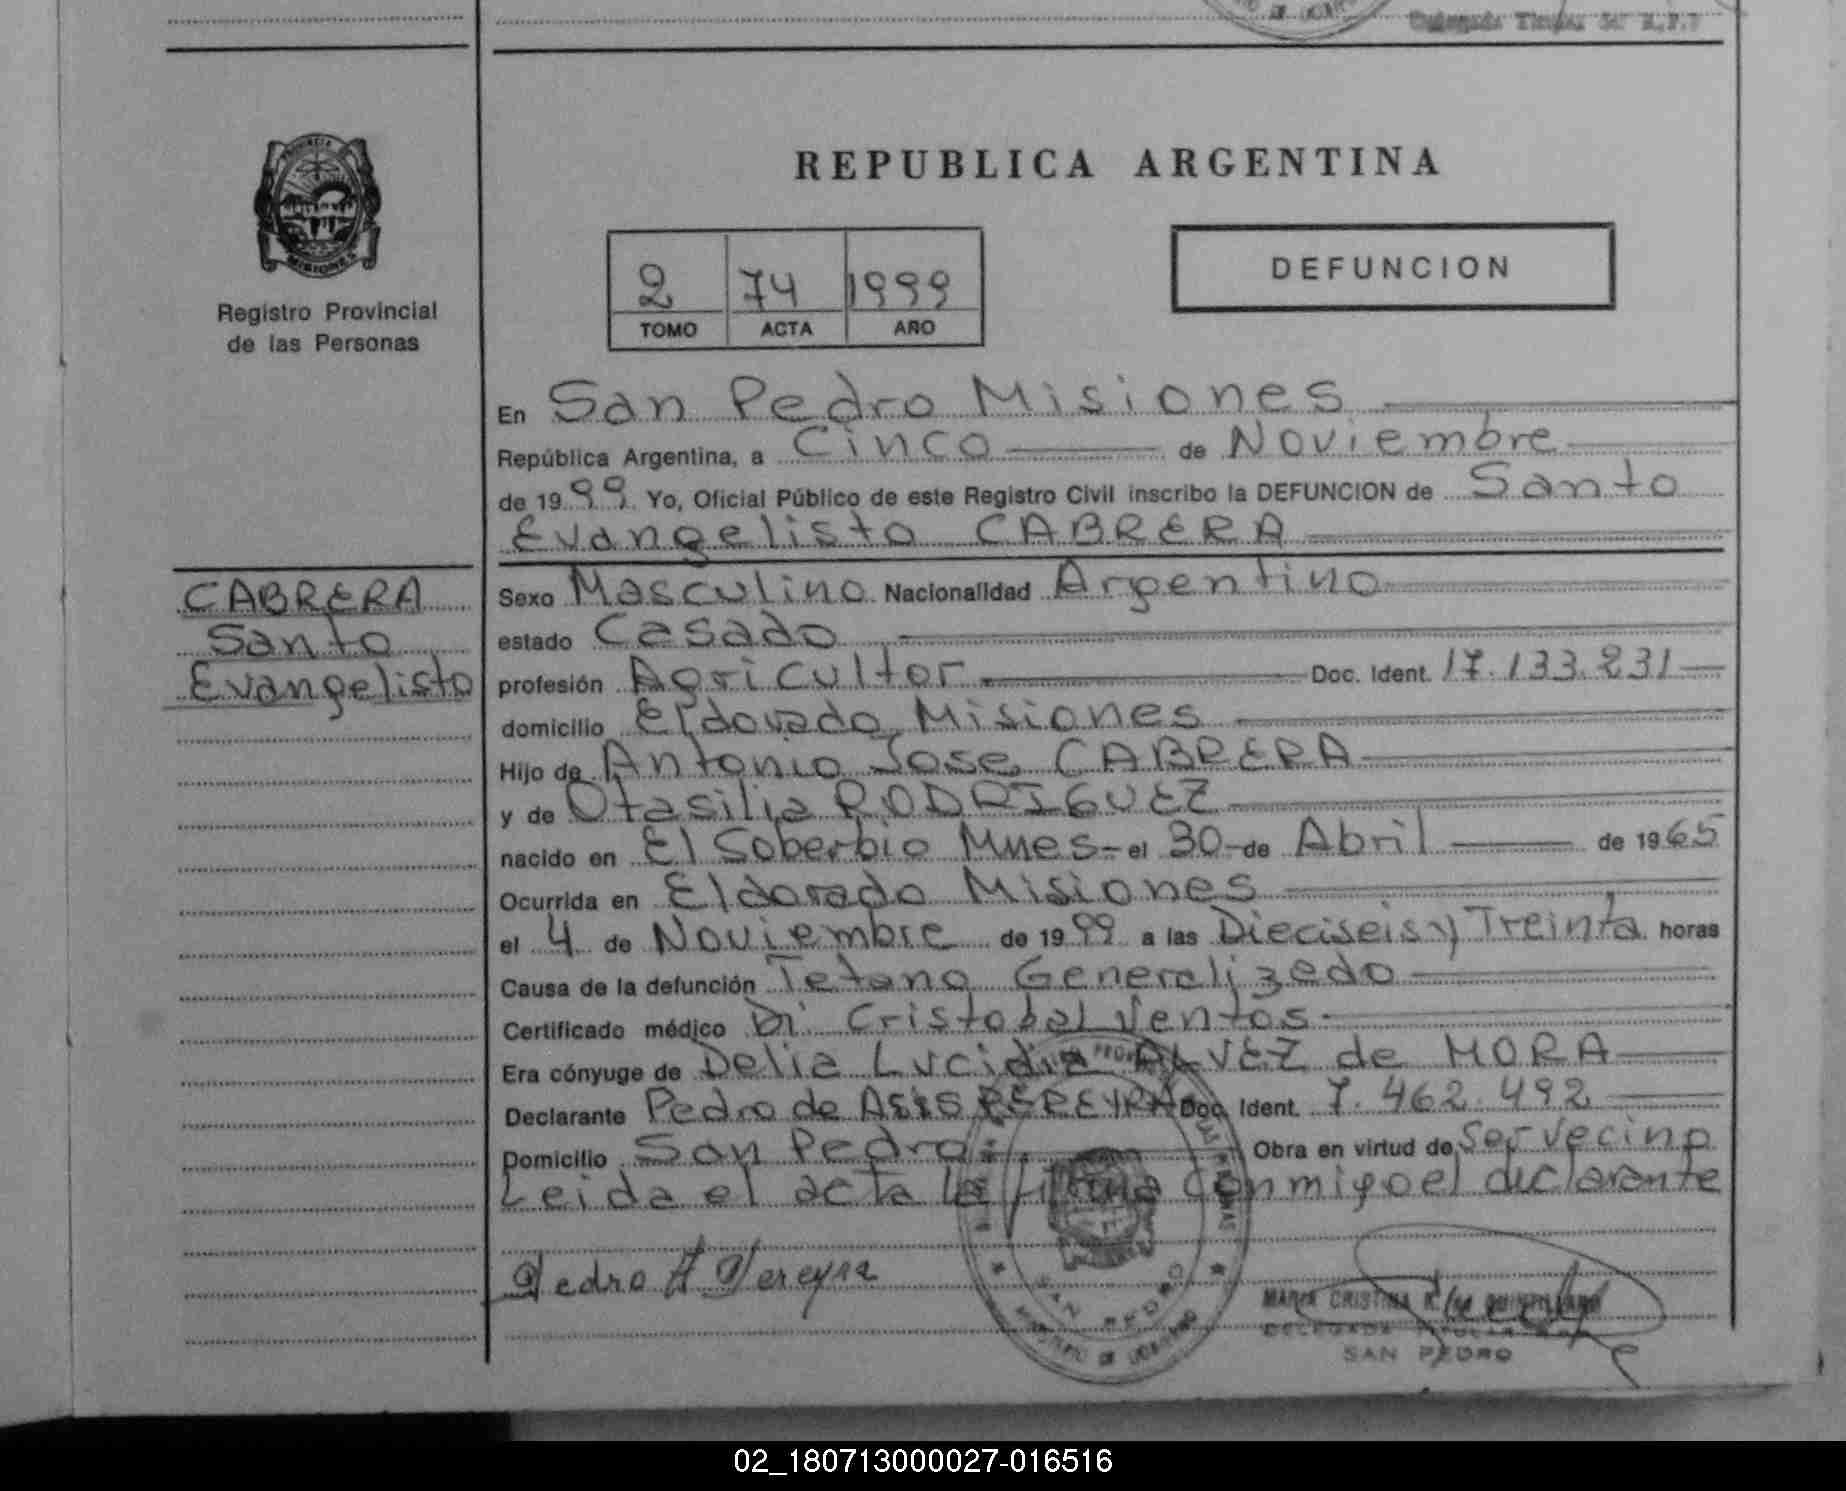 REPUBLICA ARGENTINA
PROVINCIA DE
MISIONES
Registro Provincial
de las Personas
2 74 1999
TOMO ACTA AÑO
DEFUNCION
En San Pedro Misiones
República Argentina, a Cinco de Noviembre
de 1999 Yo, Oficial Público de este Registro Civil inscribo la DEFUNCION de Santo
Evangelisto CABRERA
CABRERA
Santo
Evangelisto
Sexo Masculino Nacionalidad Argentino
estado Casado
profesión Agricultor Doc. Ident. 17.133.231
domicilio Eldorado Misiones
Hijo de Antonio Jose CABRERA
y de Otasilia RODRIGUEZ
nacido en El Soberbio Mnes- el 30 de Abril de 1965
Ocurrida en Eldorado Misiones
el 4 de Noviembre de 1999 a las Dieciseis y Treinta horas
Causa de la defunción Tetano Generalizado
Certificado médico Dr. Cristobal Ventos
Era cónyuge de Delia Lucidia ALVEZ de MORA
Declarante Pedro de Asis PEREYRA Doc. Ident. 7.462.492
Domicilio San Pedro Obra en virtud de Ser vecino
Leida el acta la firma Conmigo el declarante
Pedro A Pereyra
SAN PEDRO
MARIA CRISTINA R. de
DELEGADA TITULAR
SAN PEDRO
02_180713000027-016516